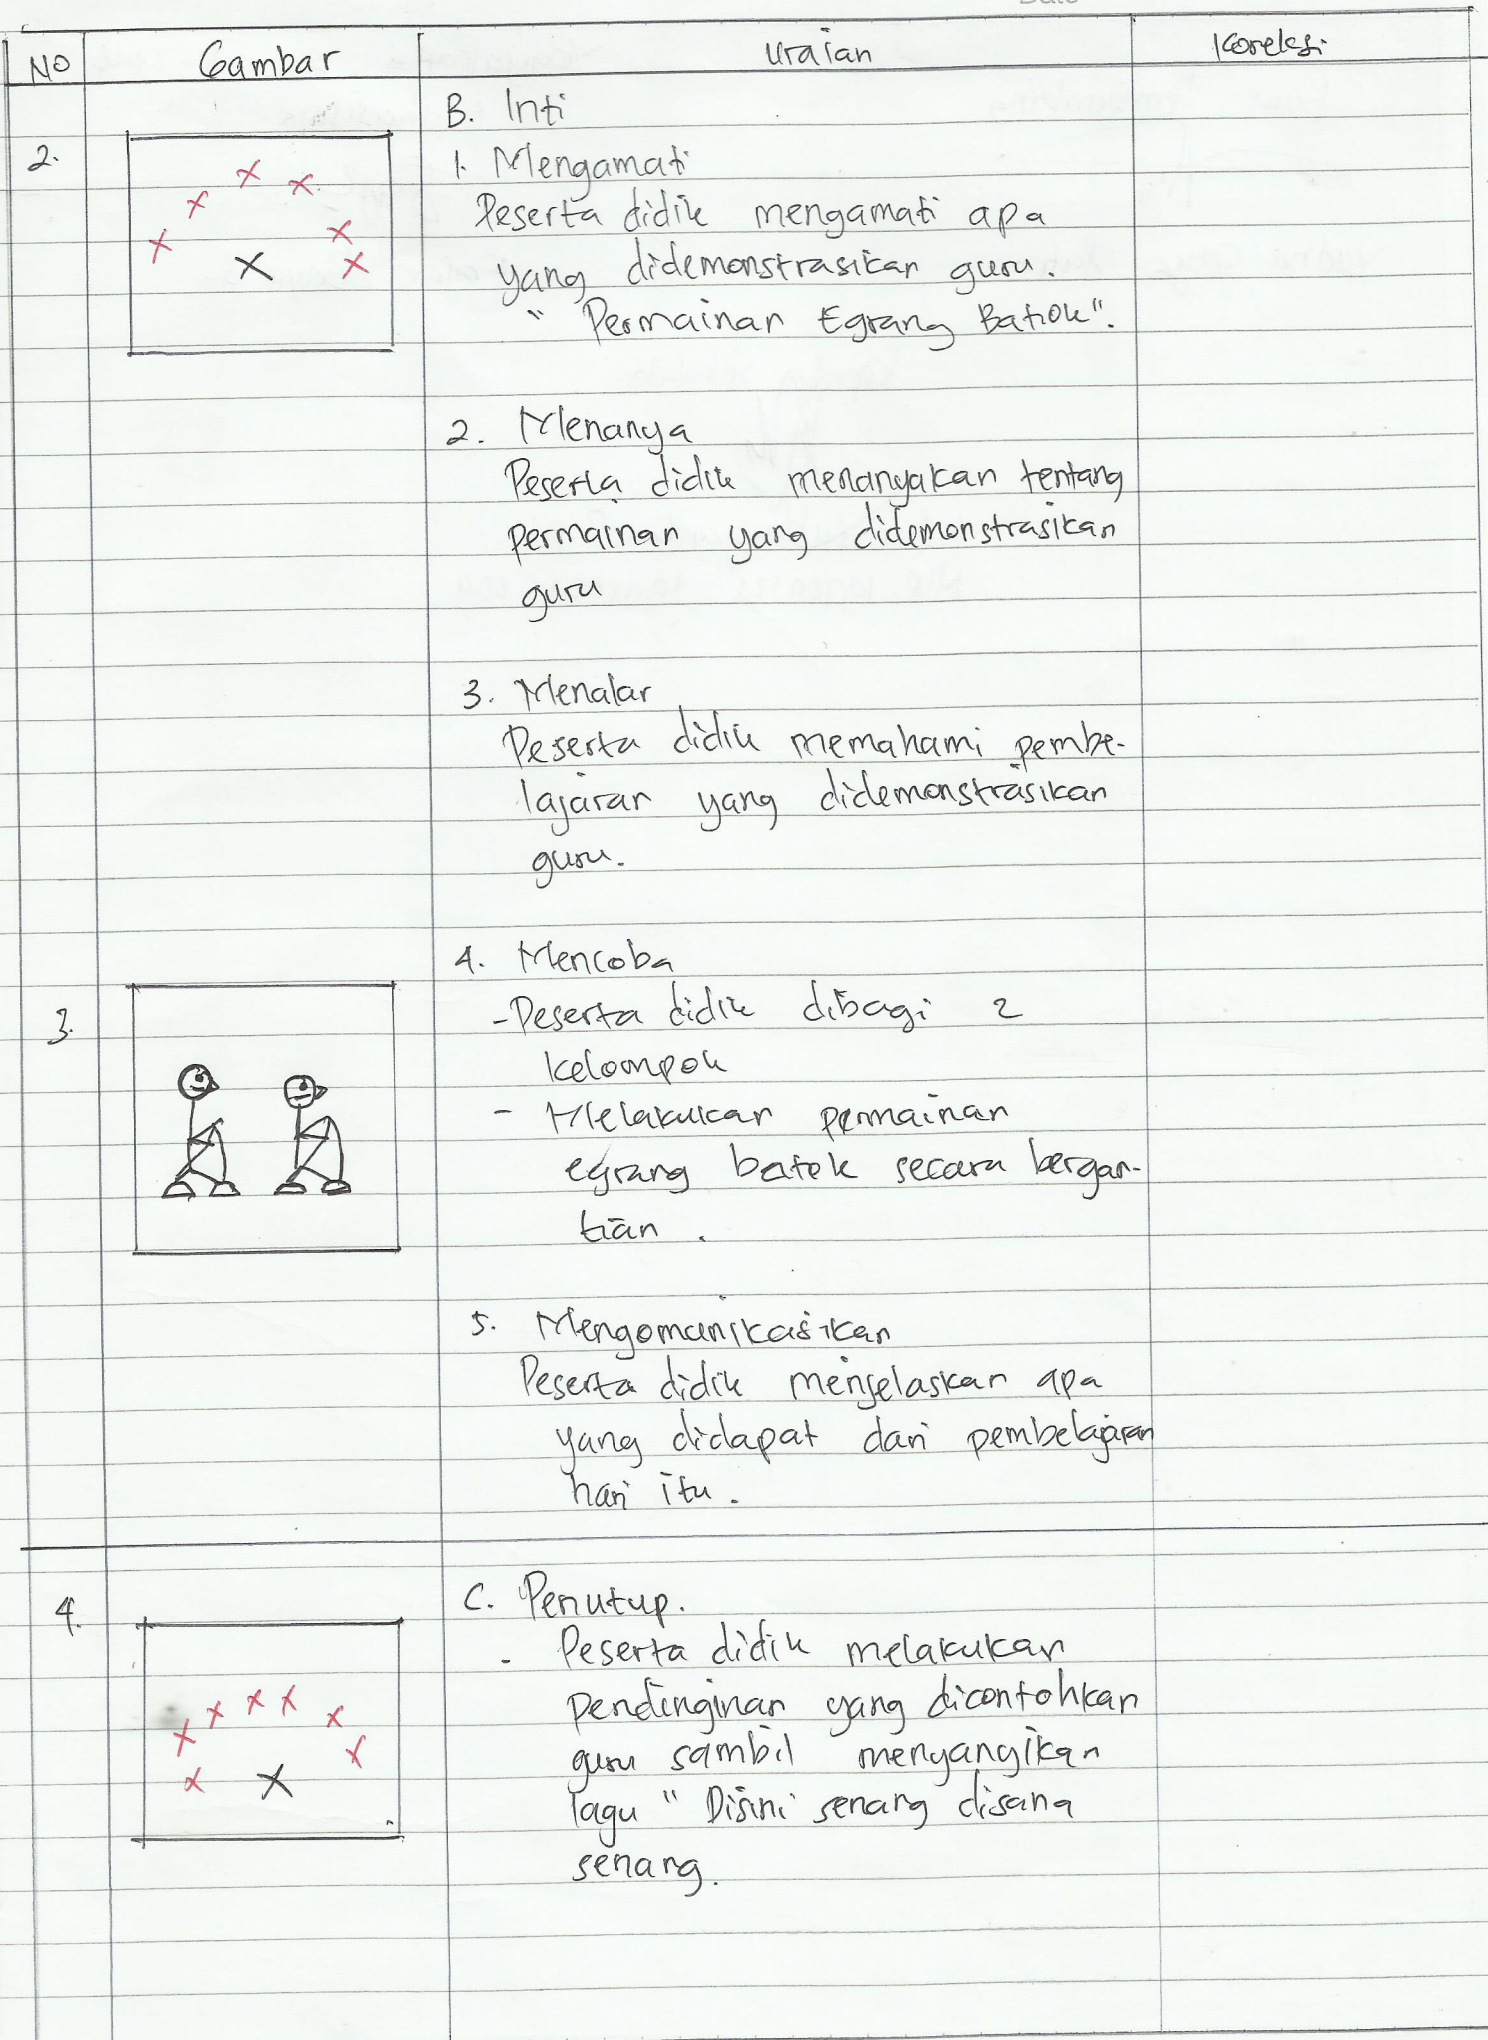 No Gambar Uraian Koreksi
B. Inti
2.
1. Mengamati
Peserta didik mengamati apa
yang didemonstrasikan guru.
" Permainan Egrang Batok".
2. Menanya
Peserta didik menanyakan tentang
permainan yang didemonstrasikan
guru
3. Menalar
Peserta didik memahami pembe-
lajaran yang didemonstrasikan
guru.
4. Mencoba
3.
- Peserta didik dibagi 2
kelompok
- Melakukan permainan
egrang batok secara bergan-
tian.
5. Mengomunikasikan
Peserta didik menjelaskan apa
yang didapat dari pembelajaran
hari itu.
4.
C. Penutup.
- Peserta didik melakukan
pendinginan yang dicontohkan
guru sambil menyangikan
lagu " Disini senang disana
senang.